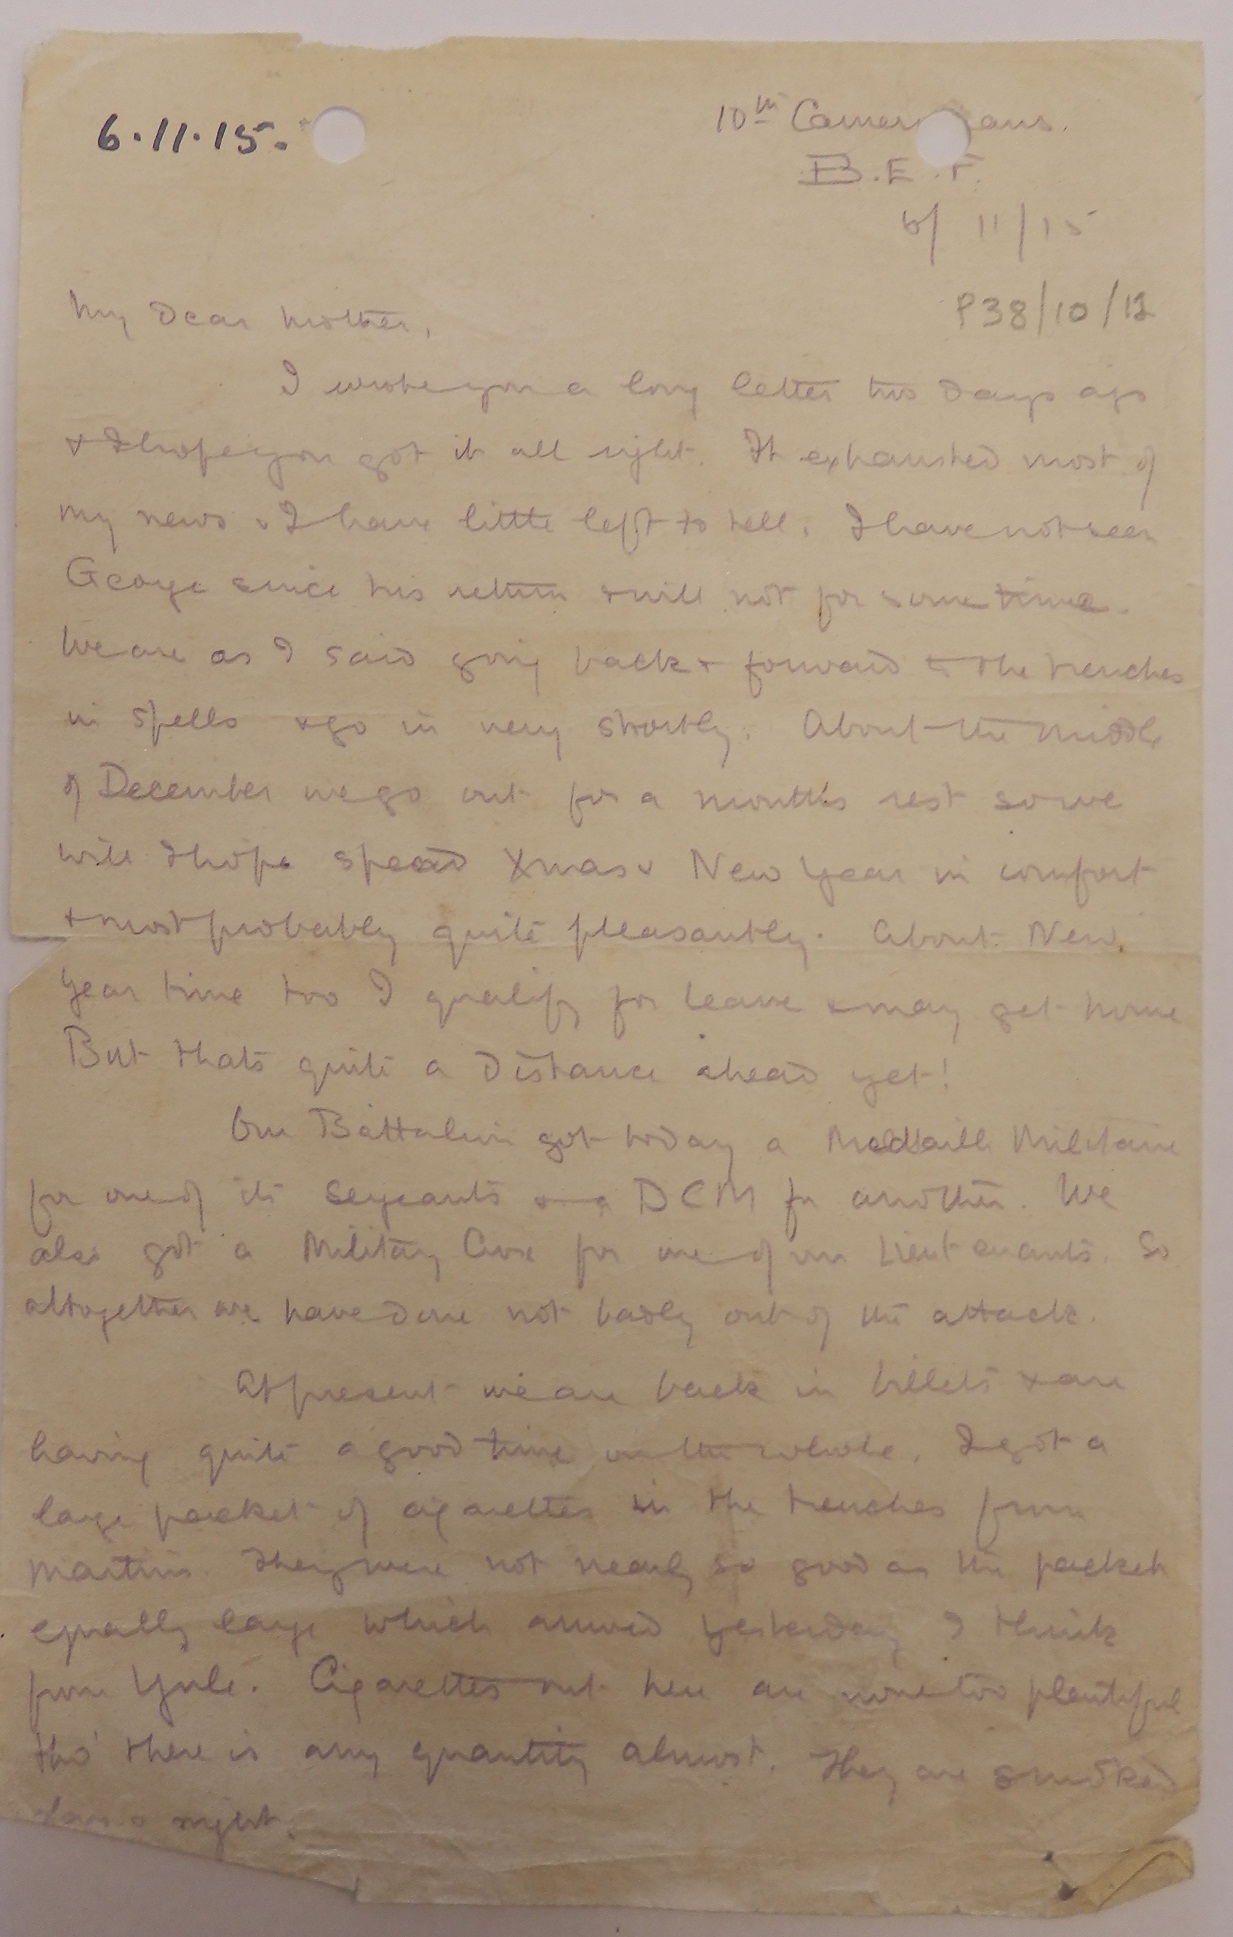 6.11.15.
10th Camer ans.
B.E.F.
6/11/15
P38/10/12
My Dear Mother,
I wrote you a long letter two days ago
& I hope you got it all right. It exhausted most of
my news & I have little left to tell. I have not seen
George since his return & will not for some time.
We are as I said going back & forward to the trenches
in spells & go in very shortly. About the middle
of December we go out for a month's rest so we
will I hope spend Xmas & New Year in comfort
& most probably quite pleasantly. About New
Year time too I qualify for leave & may get home
But thats quite a distance ahead yet!
Our Battalion got today a Medaille Militaire
for one of its sergeants & a DCM for another. We
also got a Military Cross for one of our Lieutenants. So
altogether we have done not badly out of the attack.
At present we are back in billets & are
having quite a good time on the whole. I got a
large packet of cigarettes in the trenches from
Martins. They were not nearly so good as the packet
equally large which arrived yesterday I think
from Yule. Cigarettes out here are none too plentiful
tho' there is any quantity almost. They are smoked
day & night.